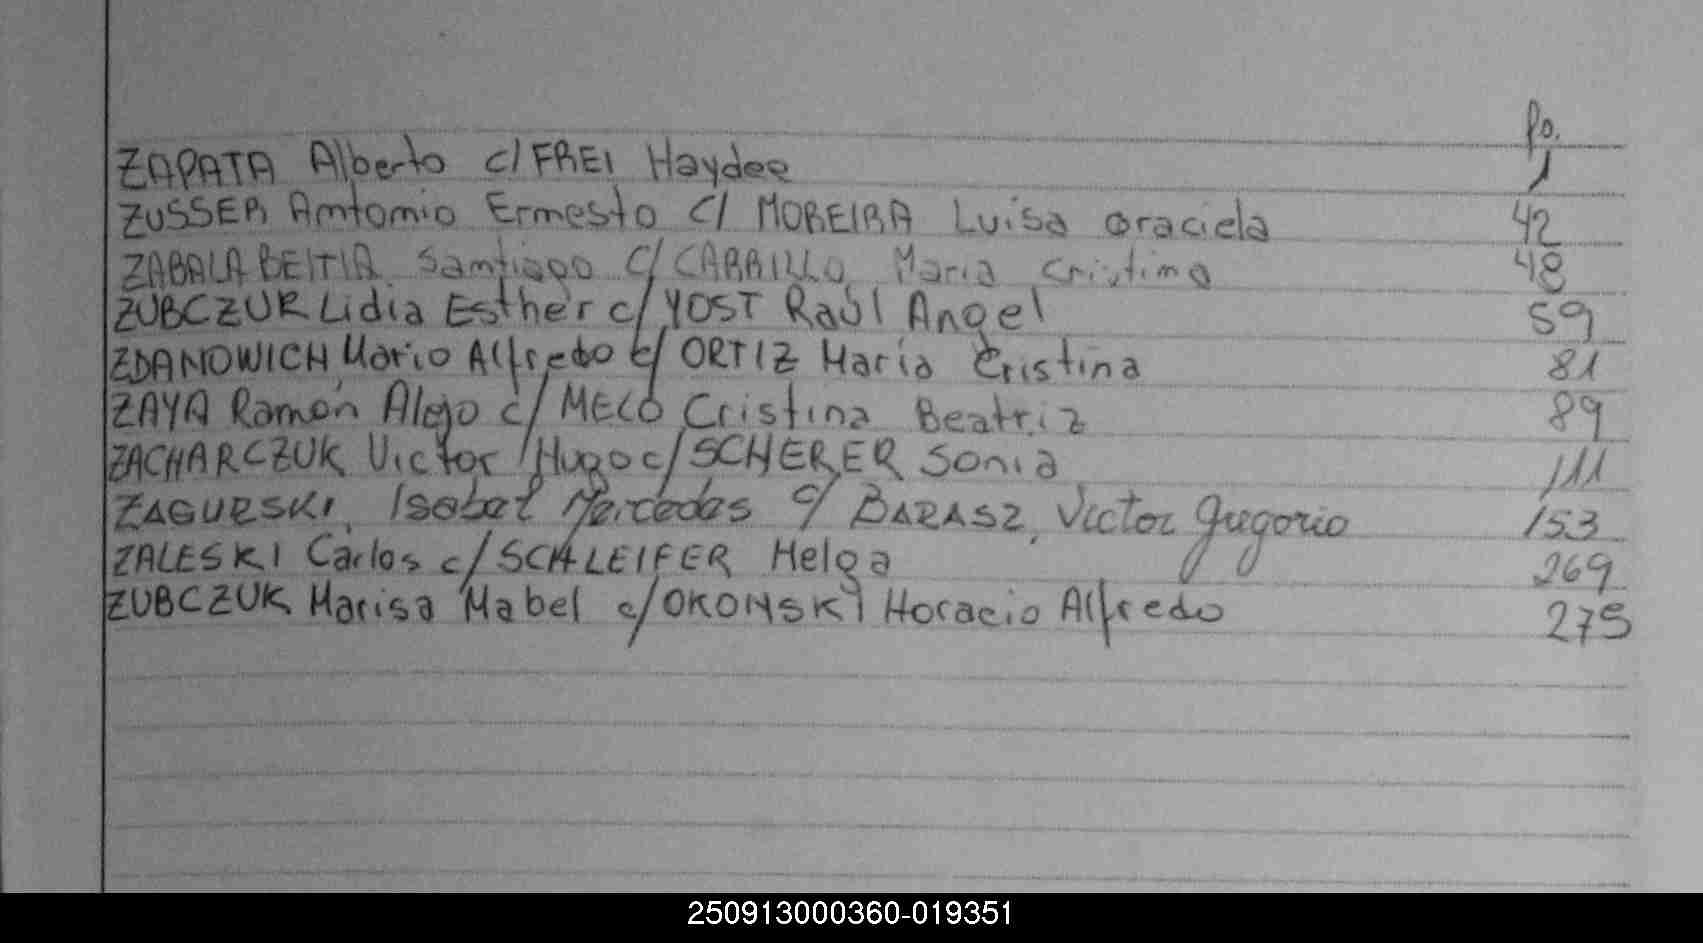 Fo.
ZAPATA Alberto c/ FREI Haydee 1
ZUSSER Antonio Ernesto c/ MOREIRA Luisa Graciela 42
ZABALA BEITIA Santiago c/ CARRILLO Maria Cristina 48
ZUBCZUK Lidia Esther c/ YOST Raúl Angel 59
ZDANOWICH Mario Alfredo c/ ORTIZ María Cristina 81
ZAYA Ramón Alejo c/ MELO Cristina Beatriz 89
ZACHARCZUK Victor Hugo c/ SCHERER Sonia 111
ZAGURSKI, Isabel Mercedes c/ BARASZ, Victor Gregorio 153
ZALESKI Carlos c/ SCHLEIFER Helga 269
ZUBCZUK Marisa Mabel c/ OKONSKI Horacio Alfredo 275
250913000360-019351